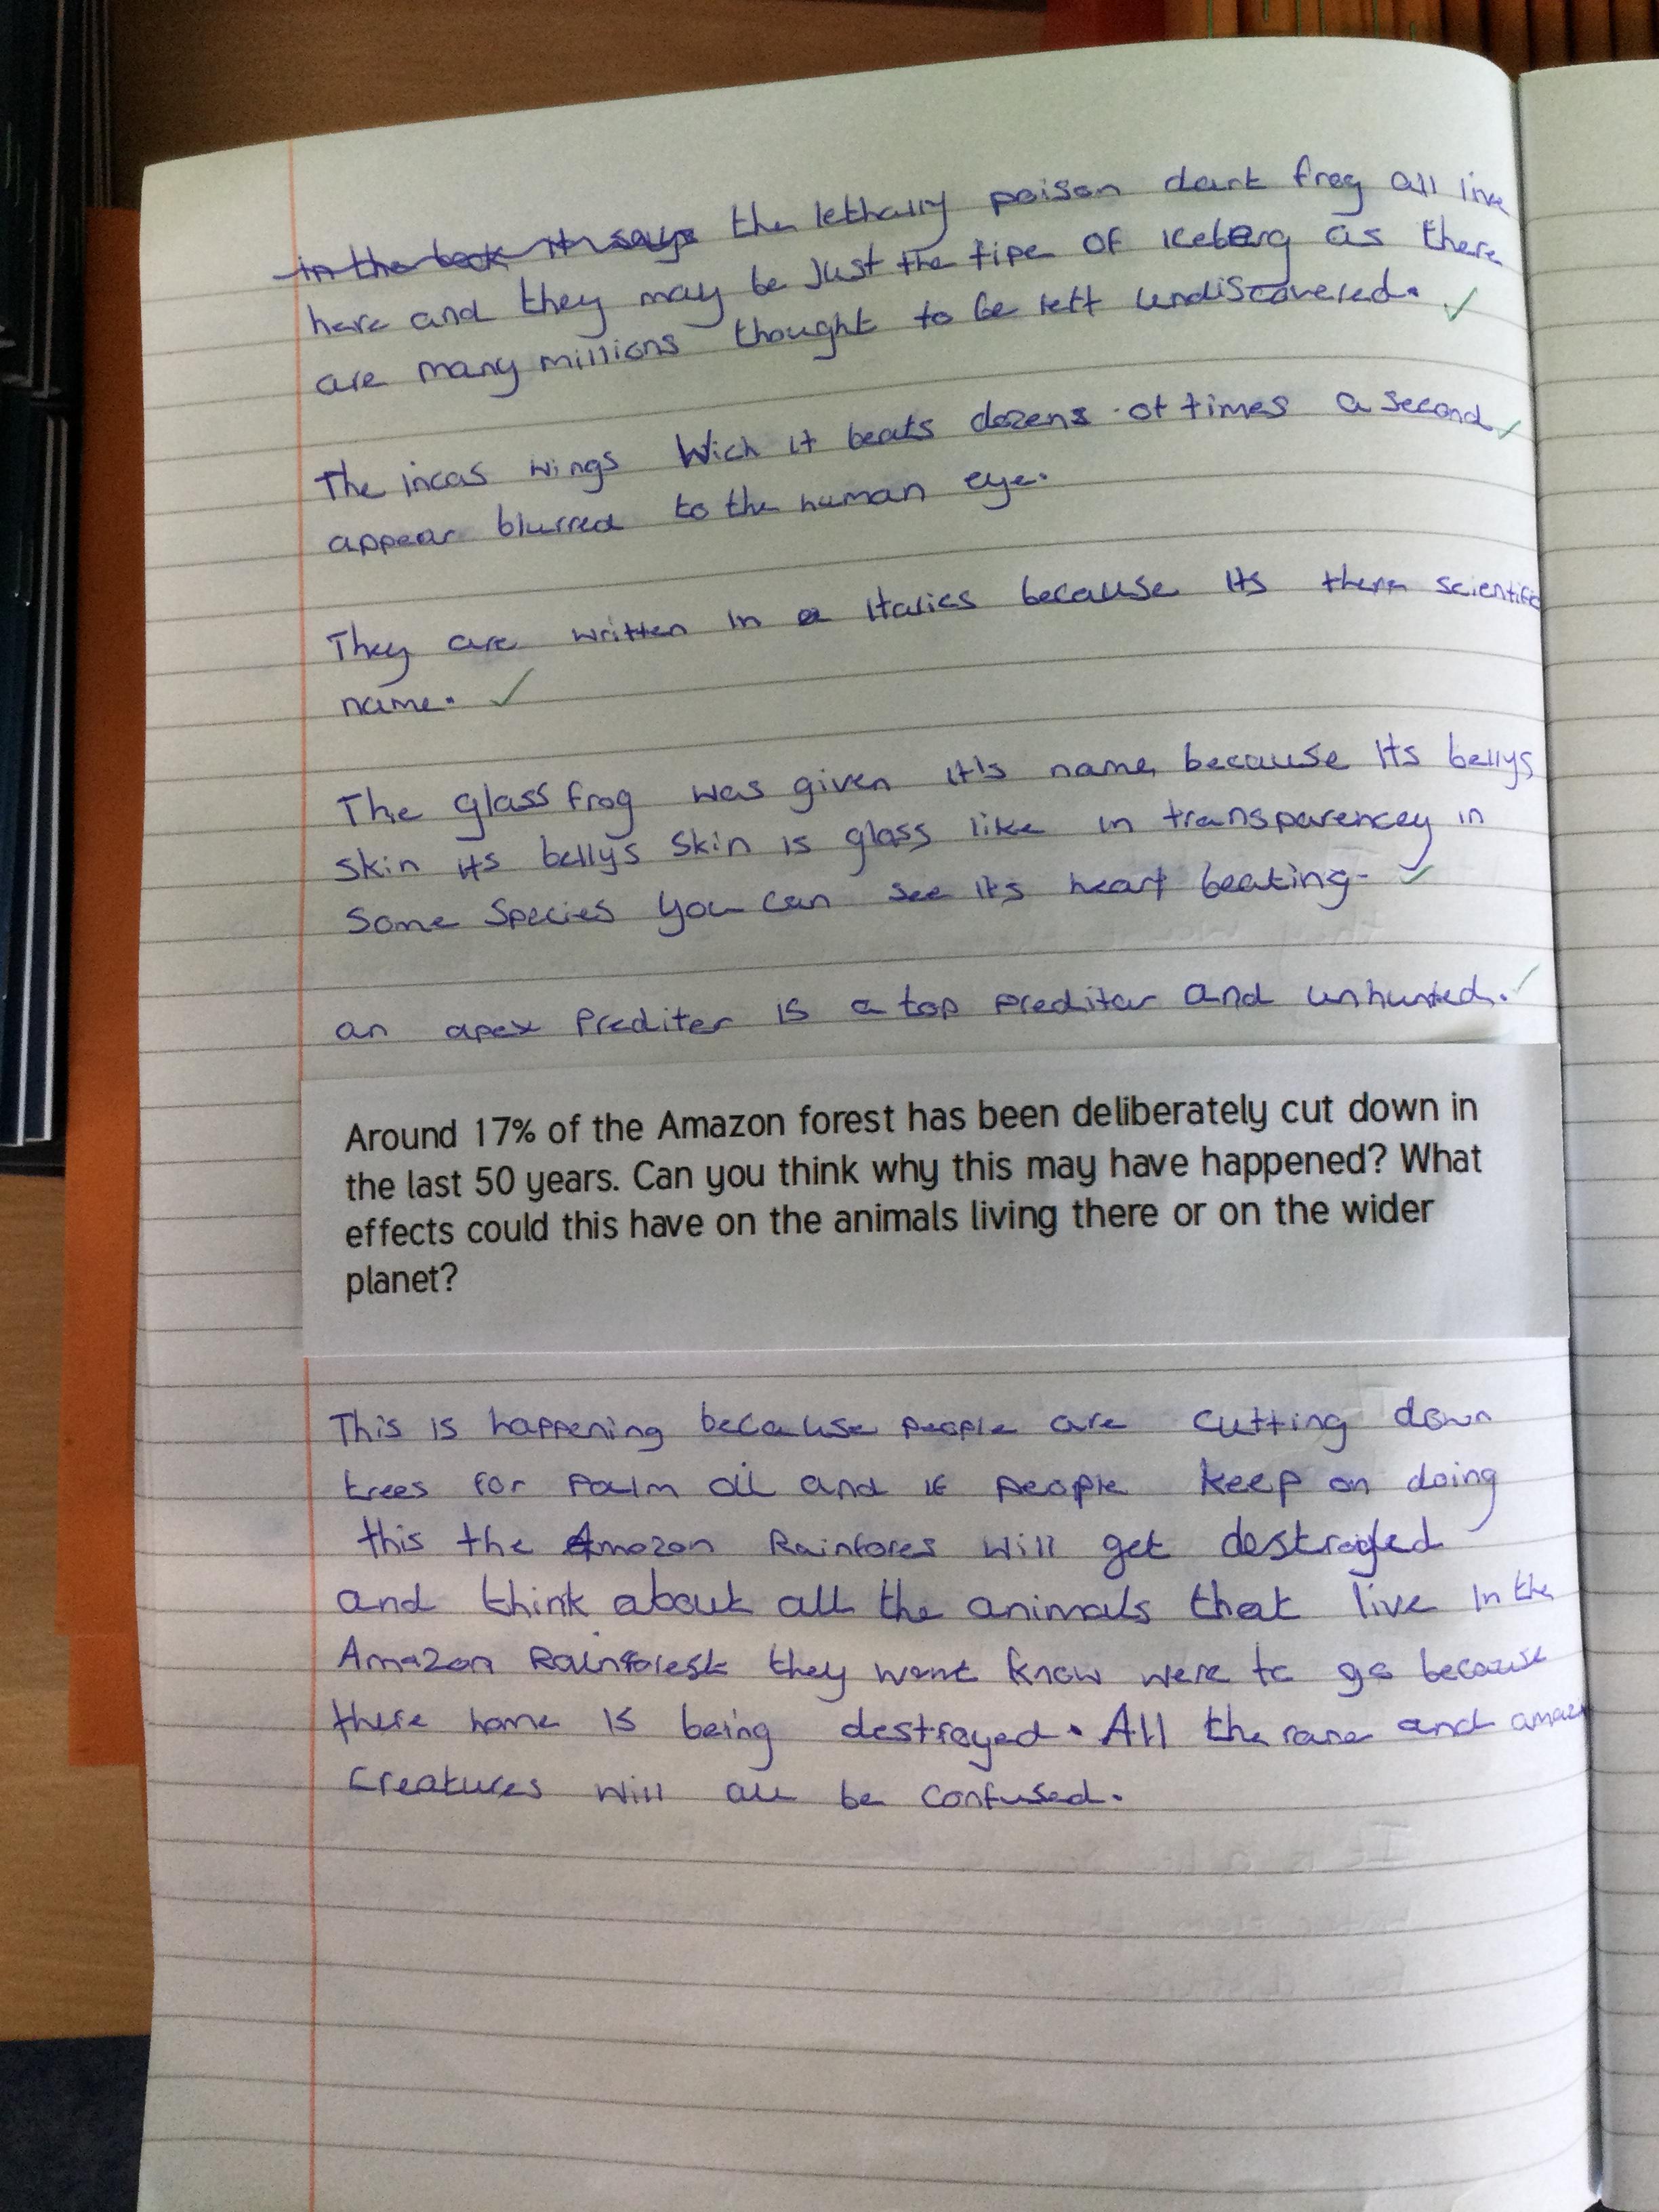 in the book it says the lethally poison dart frog all live
here and they may be Just the tipe of iceberg as there
are many millions thought to be left undiscovered.
The incas wings Wich it beats dozens of times a second
appear blurred to the human eye.
They are written in a italics because its there scientific
name.
The glass frog was given it's name because its bellys
skin its bellys skin is glass like in transparencey in
Some Species you can see its heart beating.
an apex Prediter is a top preditar and unhunted.
Around 17% of the Amazon forest has been deliberately cut down in
the last 50 years. Can you think why this may have happened? What
effects could this have on the animals living there or on the wider
planet?
This is happening because people are cutting down
trees for Palm oil and if people keep on doing
this the Amozon Rainfores will get destroyed
and think about all the animals that live in the
Amazon Rainforest they wont know were to go because
there home is being destroyed. All the rare and
Creatures will all be confused.